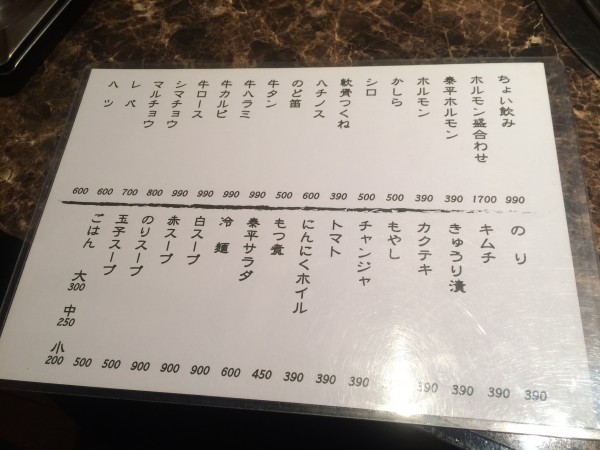 ちょい飲み 990
ホルモン盛合わせ 1700
泰平ホルモン 390
ホルモン 390
かしら 500
シロ 500
軟骨つくね 390
ハチノス 600
のど笛 500
牛タン 990
牛ハラミ 990
牛カルビ 990
牛ロース 990
シマチョウ 800
マルチョウ 700
レバ 600
ハツ 600
のり 390
キムチ 390
きゅうり漬 390
カクテキ 390
もやし
チャンジャ 390
トマト 390
にんにくホイル 390
もつ煮 450
泰平サラダ 600
冷麺 900
白スープ 900
赤スープ 900
のりスープ 500
玉子スープ 500
ごはん 大 300 中 250 小 200